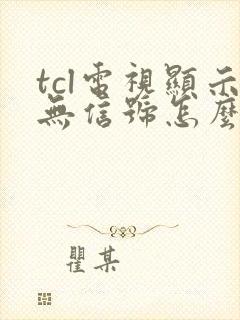 tcl電視顯示
無信號怎麼
瞿某